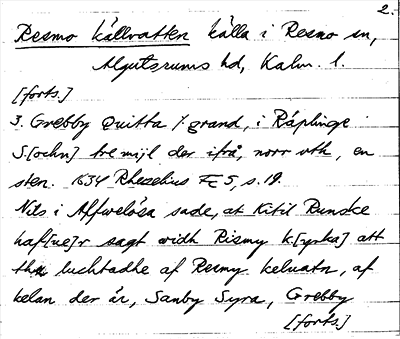 2.
Resmo källvatten källa i Resmo sn,
Algutsrums hd, Kalm. l.
[forts.]
3. Grebby Quitta /: grand, i Räplinge
S[ochn] tre mijl der ifrå, norr uth, en
sten. 1634 Rhezelius Fc 5, s. 19.
Nils i Affwelösa sade, at Kitil Runske
haf[ue]r sagt widh Rismy k[yrka] att
thz luchtadhe af Resmy keluatn, af
kelan der är, Sanby Syra, Grebby
[forts.]